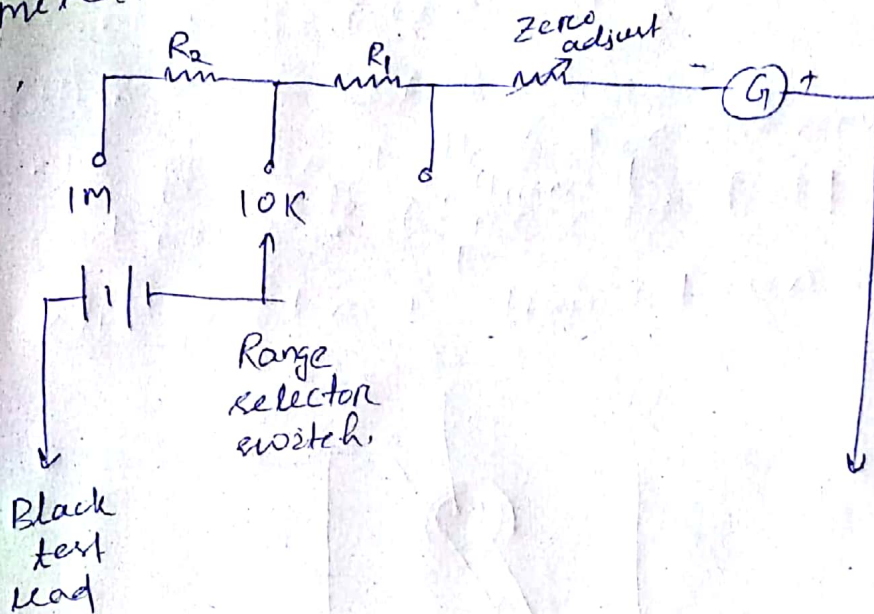 R2
R1
Zero
adjust
-
G
+
1M
10K
Range
selector
switch.
Black
test
lead